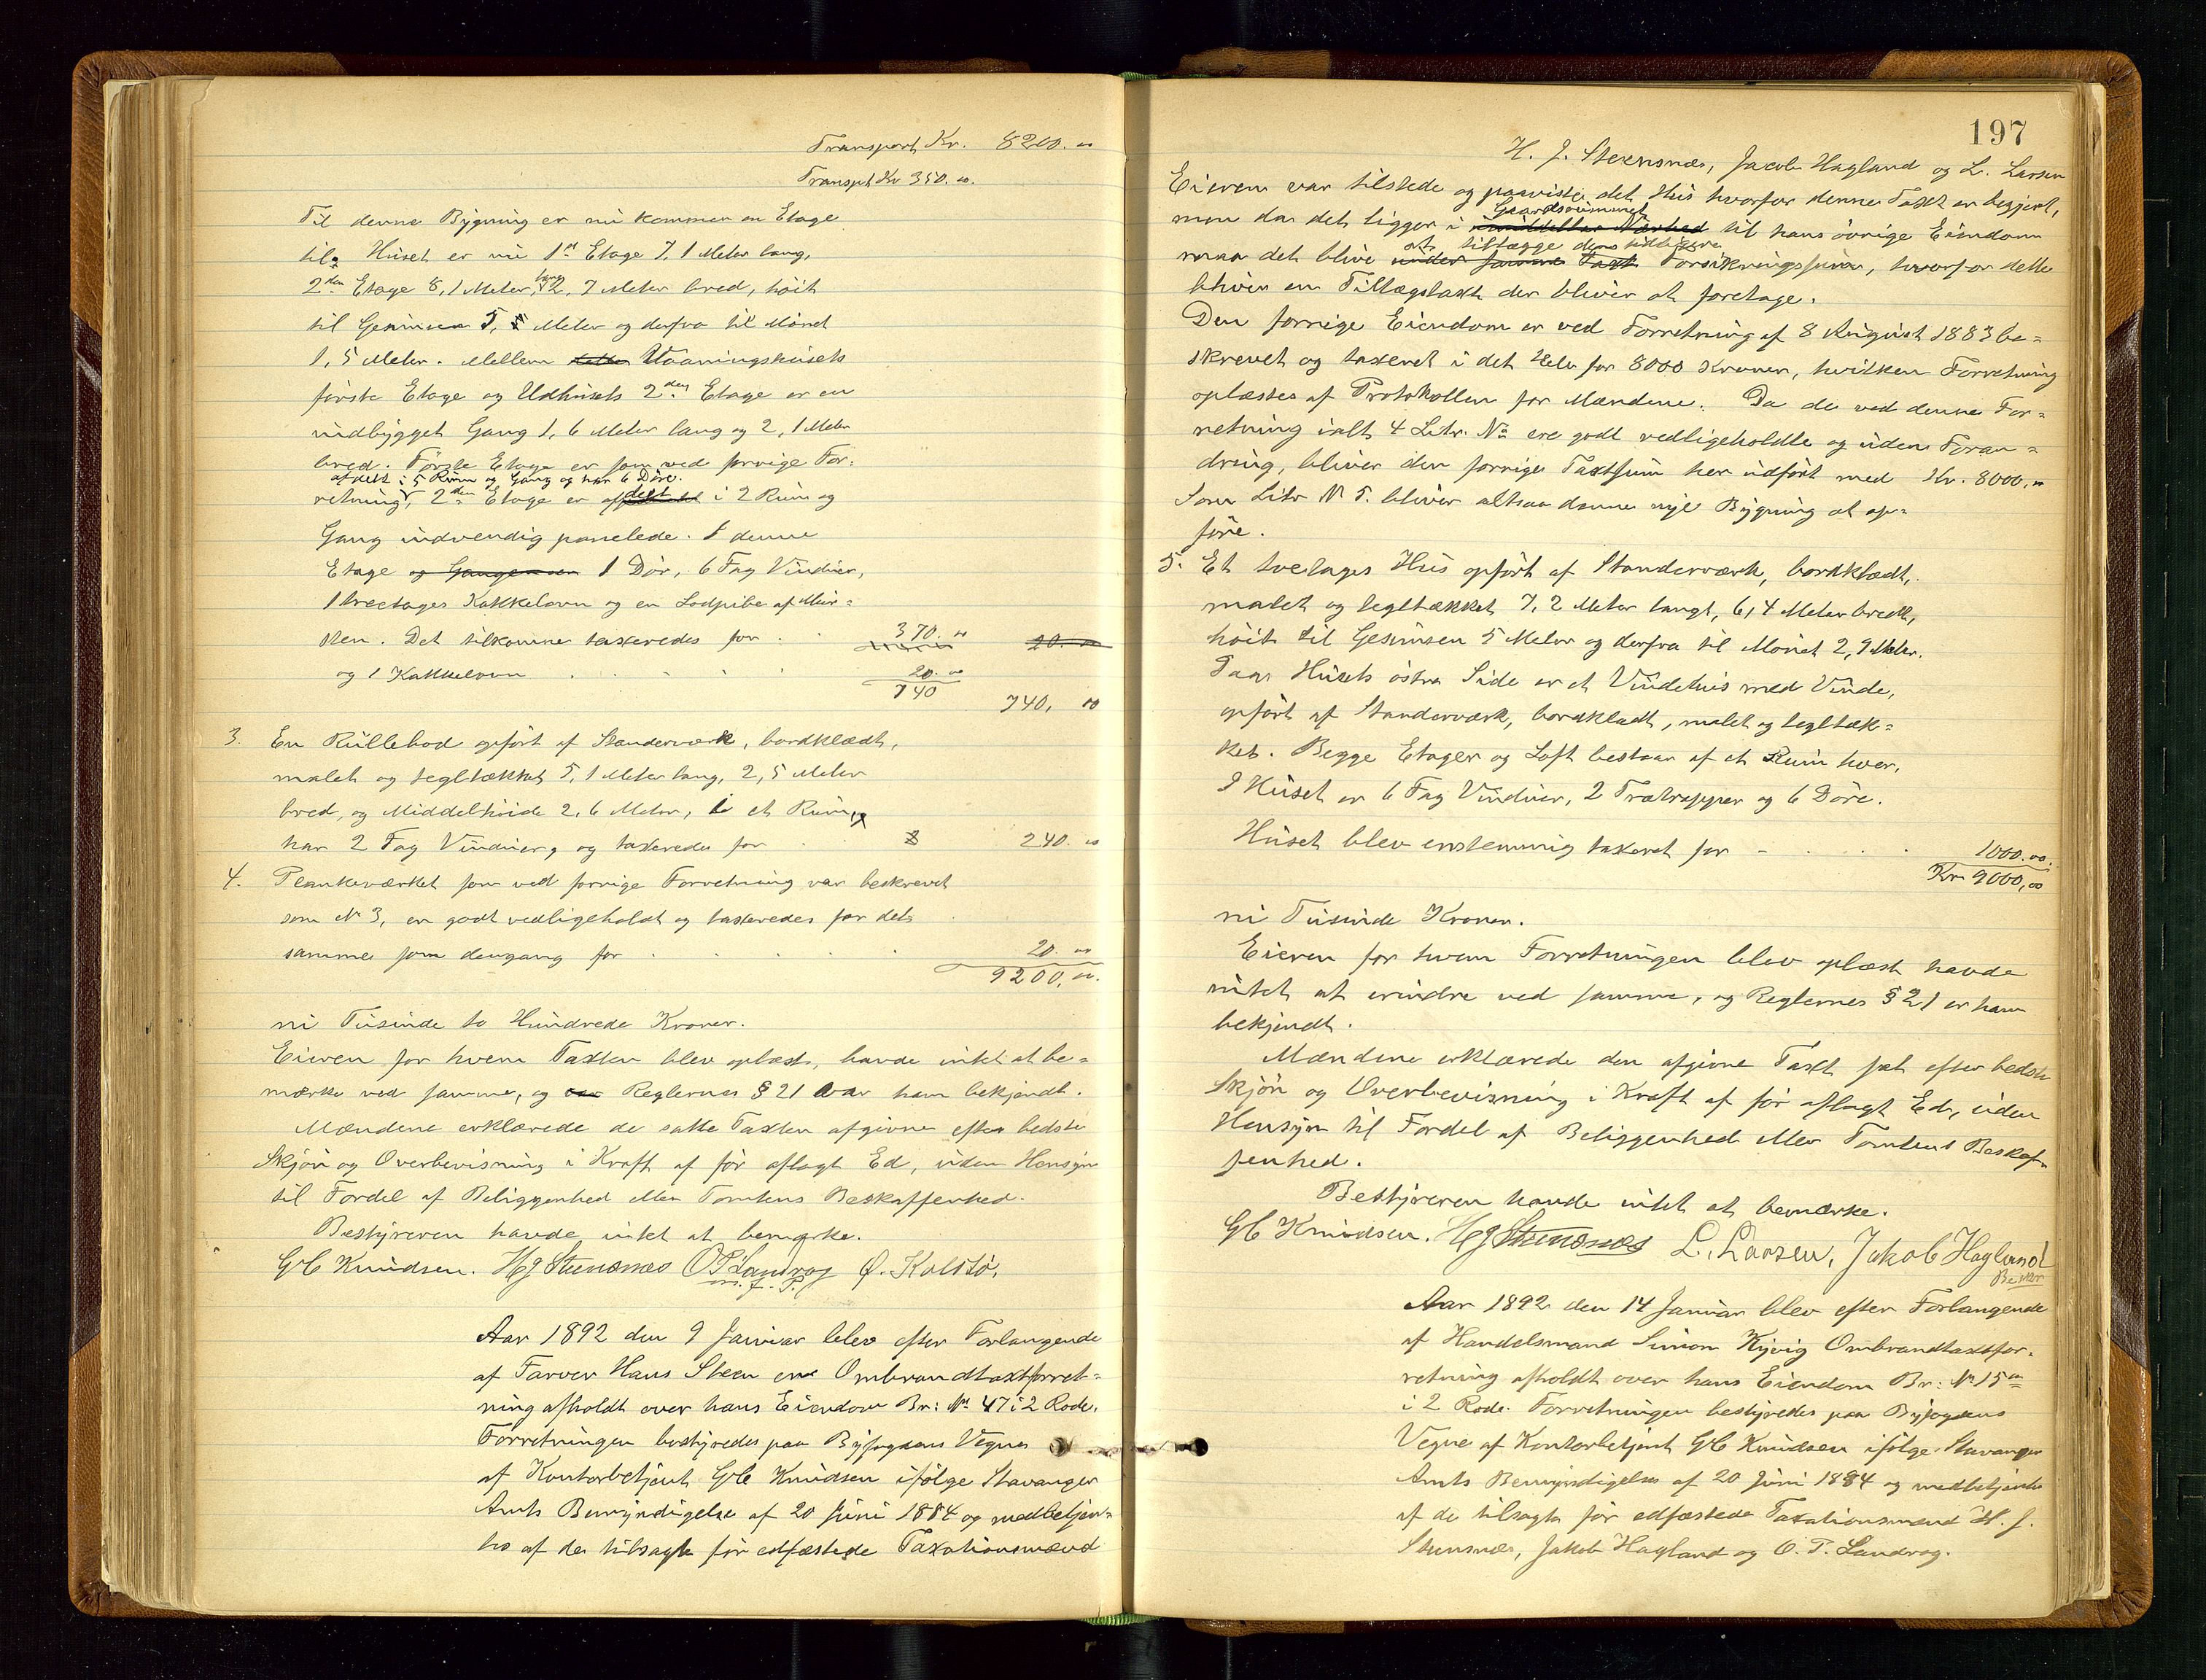 Transport Kr. 8200. 00
Transpt Kr 350. 00.
Til denne Bygning er nu kommen en Etage
til. Huset er nu 1ste Etage 7,1 Meter lang,
2den Etage 8,1 Meter lang 2,7 Meter bred, höit
til Gesimsen 5, Meter og derfra til Mönet
1,5 Meter. Mellem Vaaningshusets
förste Etage og Udhusets 2den Etage er en
indbygget Gang 1,6 Meter lang og 2,1 Meter
bred. Förste Etage er som ved forrige For=
afdelt i 5 Rum og Gang og har 6 Döre.
retning, 2den Etage er afdelt i 2 Rum og
Gang indvendig panelede. I denne
Etage og Gangen 1 Dör, 6 Fag Vinduer,
1 treetages Kakkelovn og en Lodpibe af Mur=
sten. Det tilkomne taxeredes for 370. 00 20. 00
og 1 Kakkelovn 20. 00
740 740, 00
3. En Rullebod opfört af Standerværk, bordklædt,
malet og tegltækket 5,1 Meter lang, 2,5 Meter
bred, og Middelhöide 2,6 Meter, i et Rum,
har 2 Fag Vinduer, og taxeredes for 240. 00
4. Plankeværket som ved forrige Forretning var beskrevet
som No 3, er godt vedligeholdt og taxeredes for det
samme som dengang for 20. 00
9200, 00.
ni Tusinde to Hundrede Kroner.
Eieren for hvem Taxten blev oplæst, havde intet at be=
mærke ved samme, og Reglernes § 21 var ham bekjendt.
Mændene erklærede de satte Taxten afgivne efter bedste
Skjön og Overbevisning i Kraft af för aflagt Ed, uden Hensyn
til Fordel af Beliggenhed eller Tomtens Beskaffenhed.
Bestyreren havde intet at bemærke.
GC Knudsen. HJ Steensnæs O P Landrog Ö. Kolstö.
m. f. P.
Aar 1892 den 9 Januar blev efter Forlangende
af Farver Hans Steen en Ombrandtaxtforret=
ning afholdt over hans Eiendom Br: No 47 i 2 Rode.
Forretningen bestyredes paa Byfogdens Vegne
af Kontorbetjent GC Knudsen ifölge Stavanger
Amts Bemyndigelse af 20 Juni 1884 og medbetjen=
tes af de tilsagte för edfæstede Taxationsmænd
197
H. J. Steensnæs, Jacob Hagland og L. Larsen
Eieren var tilstede og paaviste det Hus hvorfor denne Taxt er begjert,
Gaardsrummet
men da det ligger i umiddelbar Nærhed til hans övrige Eiendom
at tillægge dens tidligere
maa det blive under samme Taxt Forsikringssum, hvorfor dette
bliver en Tillægstaxt der bliver at foretage.
Den forrige Eiendom er ved Forretning af 8 August 1883 be=
skrevet og taxeret i det Hele for 8000 Kroner, hvilken Forretning
oplæstes af Protokollen for Mændene. Da de ved denne For=
retning ialt 4 Litr. No ere godt vedligeholdte og uden Foran=
dring, bliver den forrige Taxtsum her udfört med Kr. 8000,00
Som Litr No 5. bliver altsaa denne nye Bygning at op=
före.
5. Et toetages Hus opfört af Standerværk, bordklædt,
malet og tegltækket 7,2 Meter langt, 6,4 Meter bredt,
höit til Gesimsen 5 Meter og derfra til Mönet 2,9 Meter.
Paa Husets östre Side er et Vindehus med Vinde,
opfört af Standerværk, bordklædt, malet og tegltæk=
ket. Begge Etager og Loft bestaar af et Rum hver,
I Huset er 6 Fag Vinduer, 2 Trætrapper og 6 Döre.
Huset blev enstemmig taxeret for 1000.00.
Kr. 9000,00
ni Tusinde Kroner.
Eieren for hvem Forretningen blev oplæst havde
intet at erindre ved samme, og Reglernes § 21 er ham
bekjendt.
Mændene erklærede den afgivne Taxt sat efter bedste
Skjön og Overbevisning i Kraft af för aflagt Ed, uden
Hensyn til Fordel af Beliggenhed eller Tomtens Beskaf=
fenhed.
Bestyreren havde intet at bemærke.
GC Knudsen. HJ Steensnæs L. Larsen, Jakob Hagland
Aar 1892 den 14 Januar blev efter Forlangende
af Handelsmand Simon Kyvig Ombrandtaxtfor=
retning afholdt over hans Eiendom Br: No 15
i 2 Rode. Forretningen bestyredes paa Byfogdens
Vegne af Kontorbetjent GC Knudsen ifölge Stavanger
Amts Bemyndigelse af 20 Juni 1884 og medbetjentes
af de tilsagte för edfæstede Taxationsmænd H. J.
Steensnæs, Jakob Hagland og O. P. Landrog.